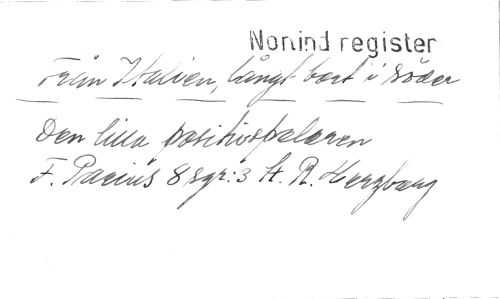 Nonind register
Från Italien, långt bort i söder
Den lilla positivspelaren
F. Pacius 8 sgr:3 t. R. Herzberg